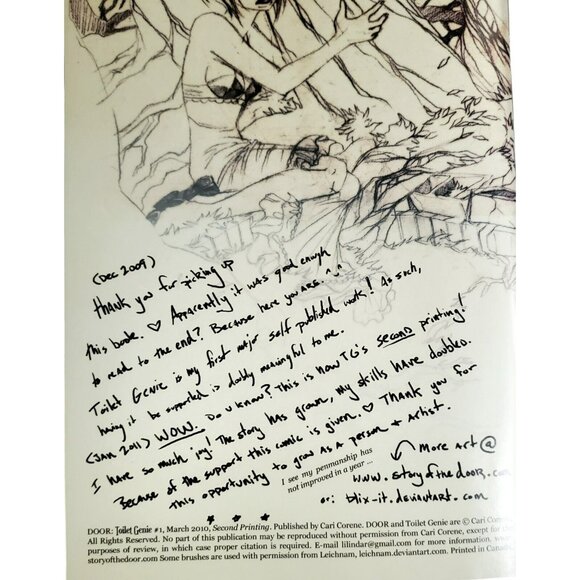 (Dec 2009)
Thank you for picking up
this book. ♡ Apparently it was good enough
to read to the end? Because here you are. ^_^
Toilet Genie is my first major self published work! As such,
having it be supported is doubly meaningful to me.
(Jan 2011) WOW. Do u know? This is now TG's second printing!
I have so much joy! The story has grown, my skills have doubled.
Because of the support this comic is given. ♡ Thank you for
this opportunity to grow as a person & artist.
I see my penmanship has
not improved in a year ...
More art @
www.storyofthedoor.com
or: blix-it.deviantart.com
★ ★ ★
DOOR: Toilet Genie #1, March 2010, Second Printing. Published by Cari Corene. DOOR and Toilet Genie are © Cari
All Rights Reserved. No part of this publication may be reproduced without permission from Cari Corene, except for
purposes of review, in which case proper citation is required. E-mail lilindar@gmail.com for more information, or
storyofthedoor.com Some brushes are used with permission from Leichnam, leichnam.deviantart.com. Printed in